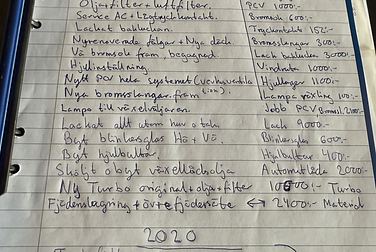 Olja+filter+luftfilter. PCV 1000:-
Service AC + Lågtryckskontakt. Bromsok 600:-
Lackat bakluckan. Tryckontakt 152:-
Nyrenoverade fälgar + Nya däck Bromsslangar 300:-
Vä bromsok fram, begagnad. Lack baklucka 3000:-
Hjulinställning Vindruta 1000:-
Nytt PCV hela systemet Hjullager 1100:-
Nya bromsslangar fram Lampa växling 100:-
Lampa till växelväljaren. Jobb PCV Bromsil. 2100:-
Lackat allt utom huv o tak Lack 9000:-
Bytt blinkersglas Hö + Vä. Blinkerglas 600:-
Bytt hjulbultar. Hjulbultar 400:-
Sköljt o bytt växellådsolja Automatlåda 2000:-
Ny Turbo original + olja + filter 10000:- Turbo
Fjäderslagning + övre fjädersäte ↔ 2400:- Material
2020